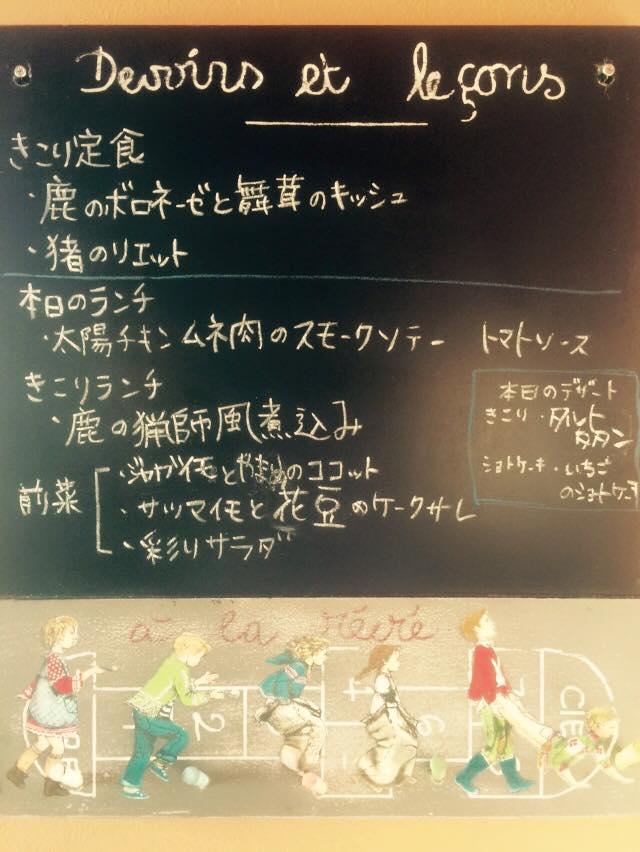 Devoirs et leçons
きこり定食
・鹿のボロネーゼと舞茸のキッシュ
・猪のリエット
本日のランチ
・太陽チキンムネ肉のスモークソテー トマトソース
きこりランチ
・鹿の猟師風煮込み
前菜
・ジャガイモとやまめのココット
・サツマイモと花豆のケークサレ
・彩りサラダ
本日のデザート
きこり・タルト
タタン
ショートケーキ・いちご
のショートケーキ
à la récré
2
4
6
7
CIE